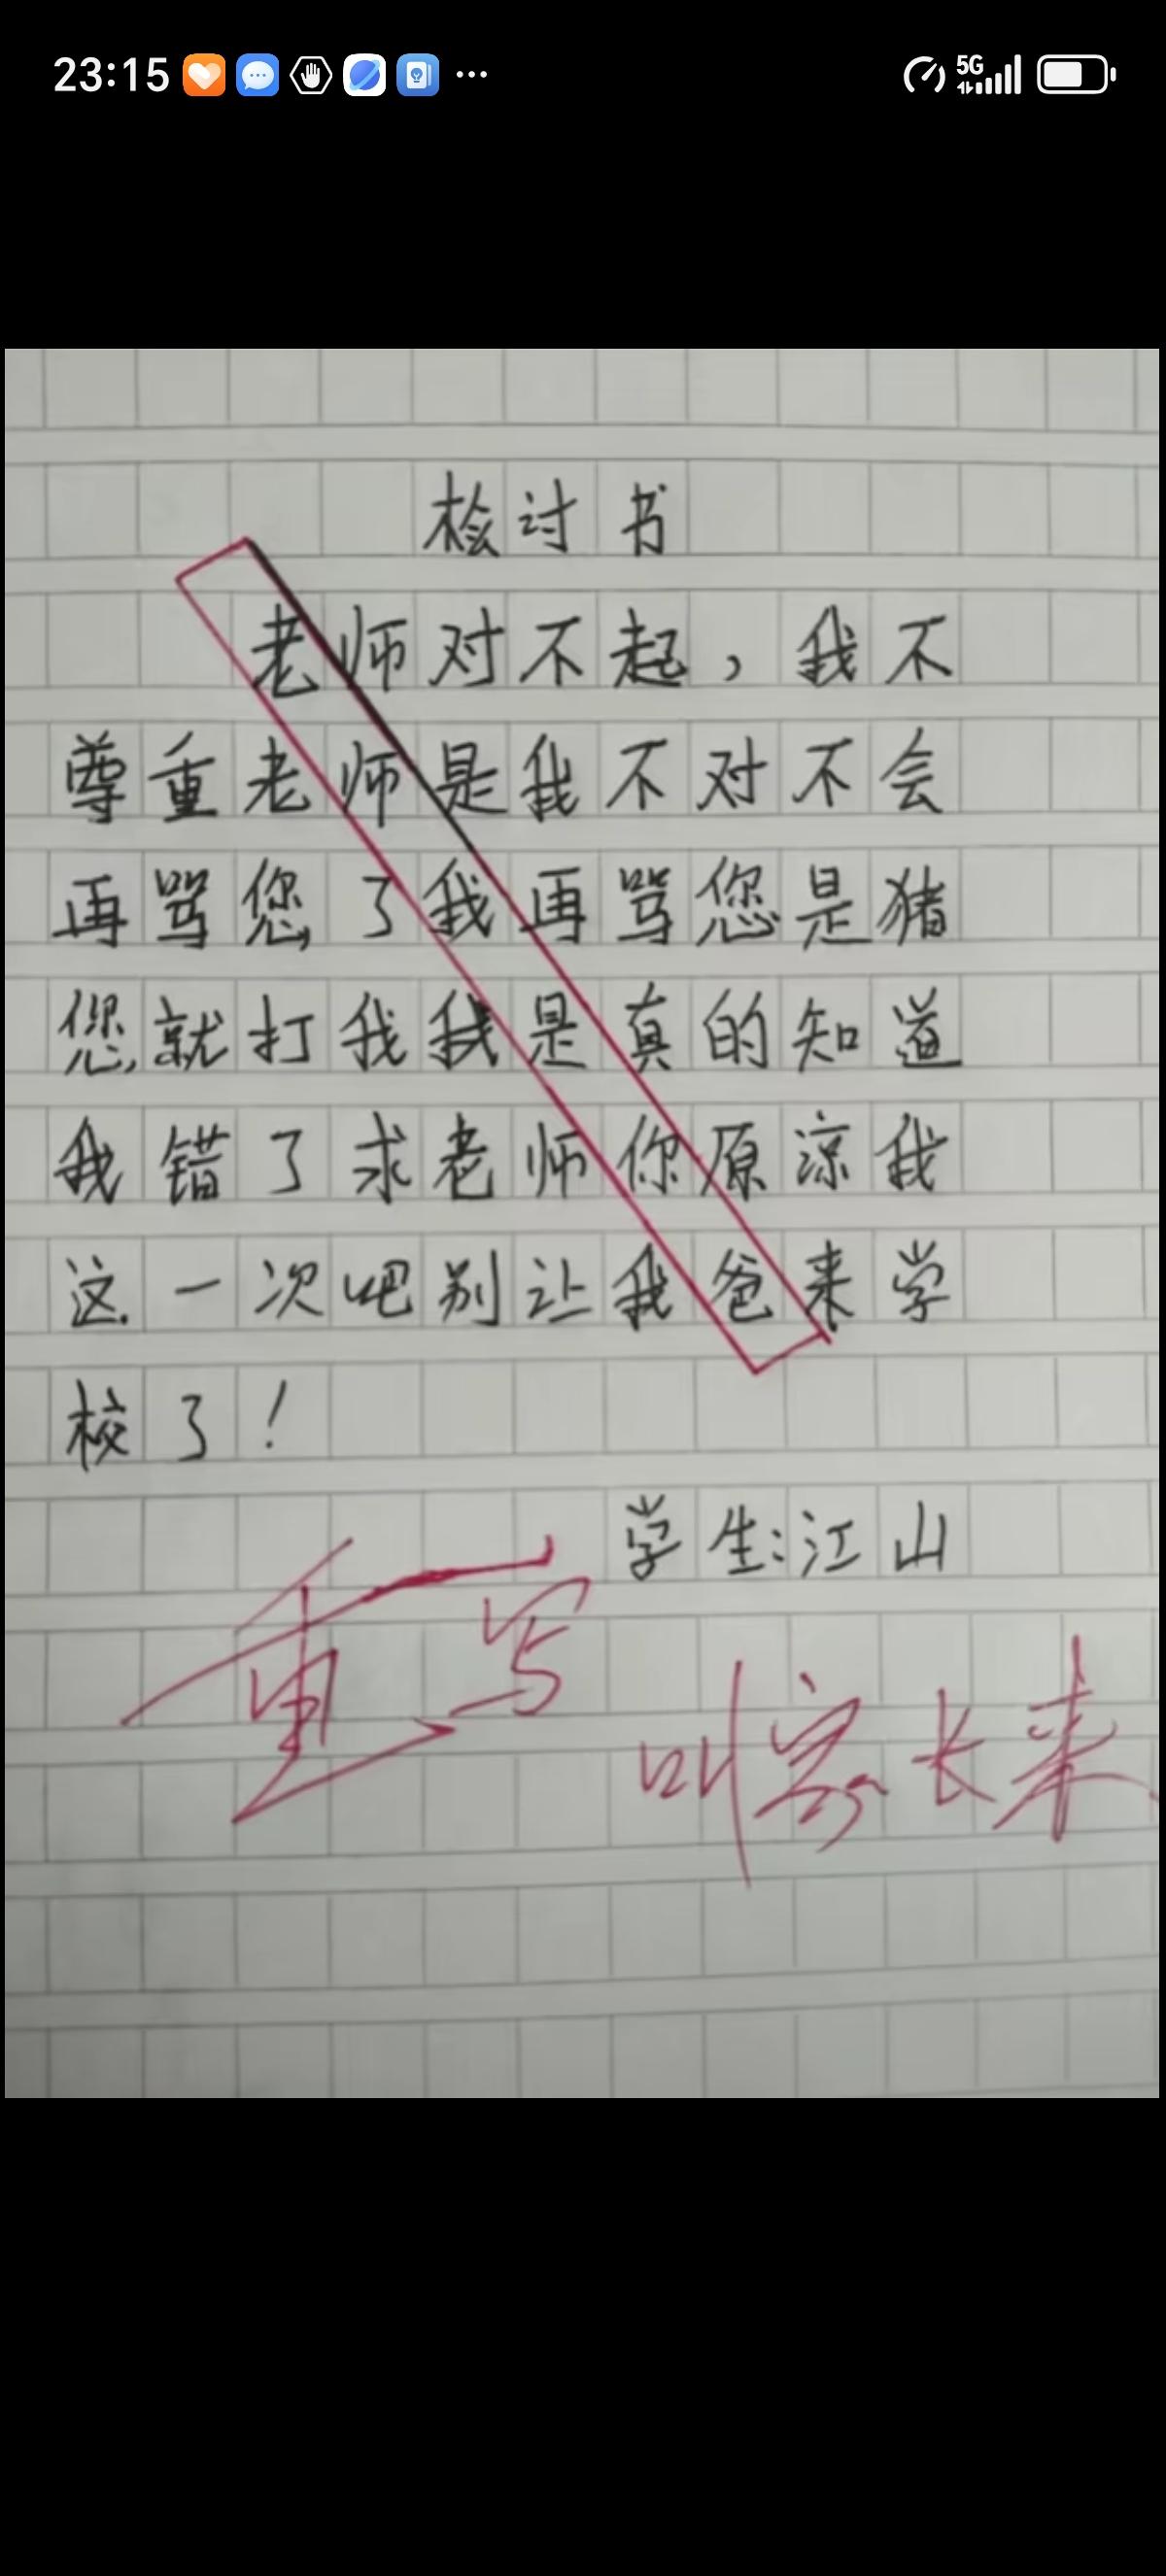 23:15
5G
检讨书
老师对不起，我不
尊重老师是我不对不会
再骂您了我再骂您是猪
您就打我我是真的知道
我错了求老师你原凉我
这一次吧别让我爸来学
校了！
学生：江山
重写
叫家长来